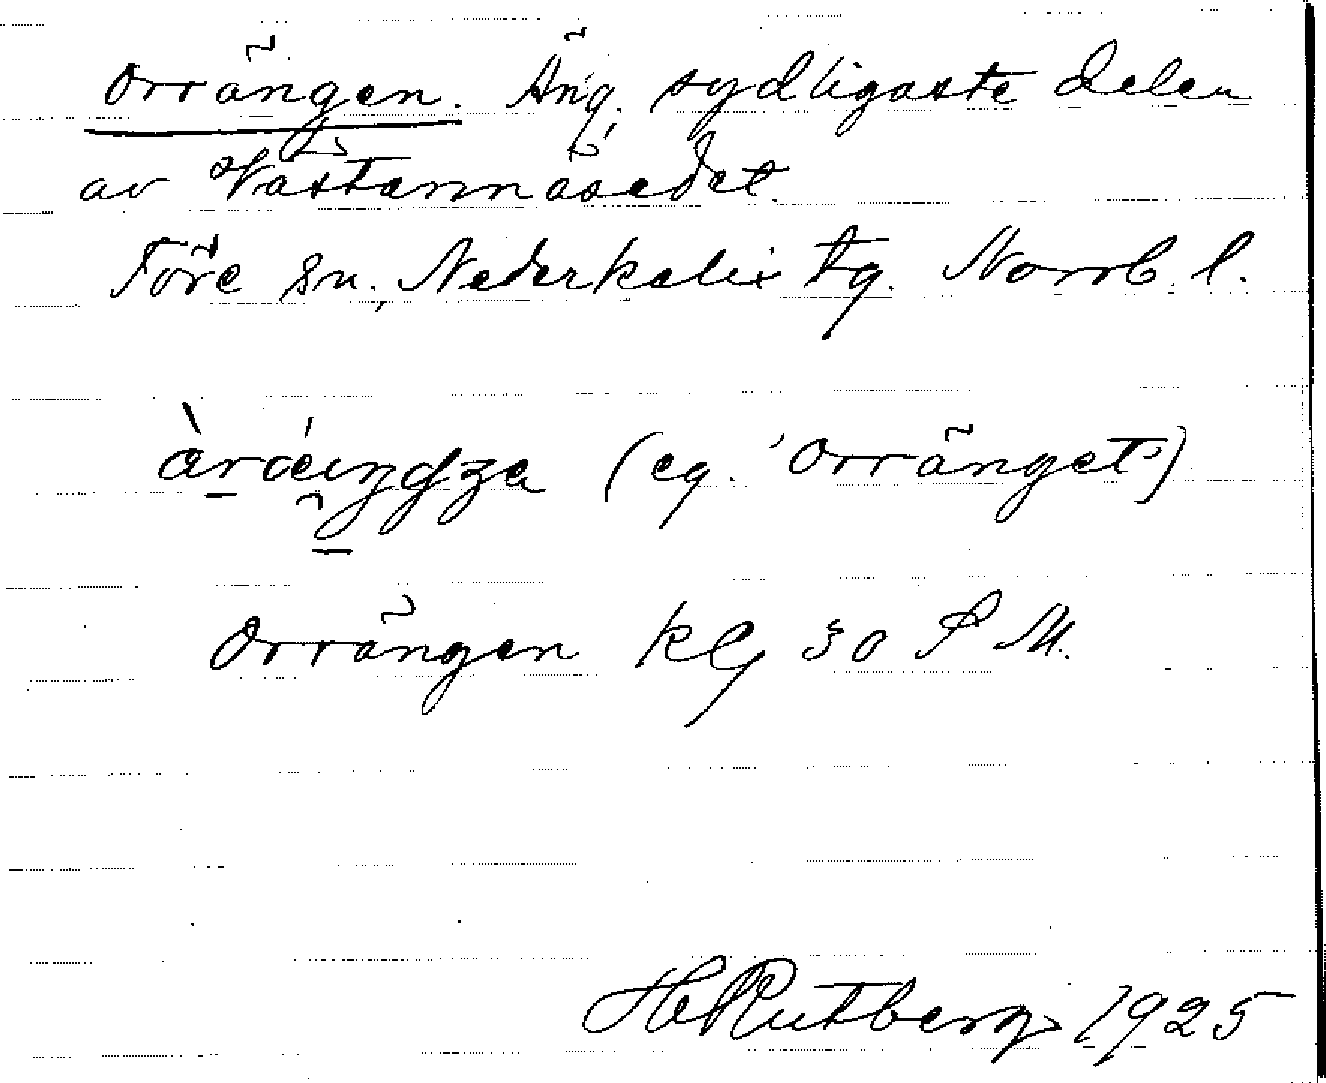 Orrängen. Äng. sydligaste delen
av Västannäsedet.
Töre sn., Nederkalix tg. Norrb. l.
(eg. 'Orränget')
Orrängen kl. 30 S M.
H Rutberg 1925